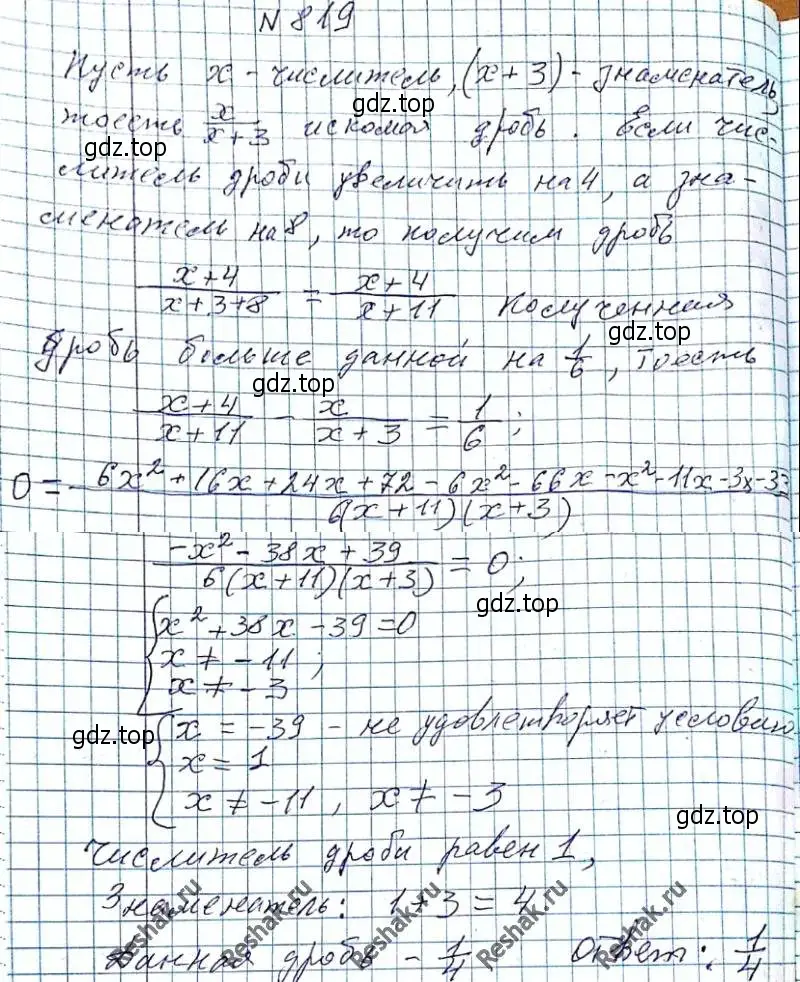 N 819
Пусть x - числитель, (x+3) - знаменатель
тоесть x/(x+3) искомая дробь. Если чис-
литель дроби увеличить на 4, а зна-
менатель на 8, то получим дробь
(x+4)/(x+3+8) = (x+4)/(x+11) Полученная
дробь больше данной на 1/6, тоесть
(x+4)/(x+11) - x/(x+3) = 1/6;
0 = (6x²+16x+24x+72-6x²-66x-x²-11x-3x-33)/(6(x+11)(x+3))
(-x²-38x+39)/(6(x+11)(x+3)) = 0;
{x²+38x-39=0
x≠-11;
x≠-3
{x=-39 - не удовлетворяет условию
x=1
x≠-11, x≠-3
Числитель дроби равен 1,
Знаменатель: 1+3=4
Данная дробь - 1/4 Ответ: 1/4
gdz.top
gdz.top
gdz.top
gdz.top
gdz.top
gdz.top
Reshak.ru
Reshak.ru
Reshak.ru
Reshak.ru